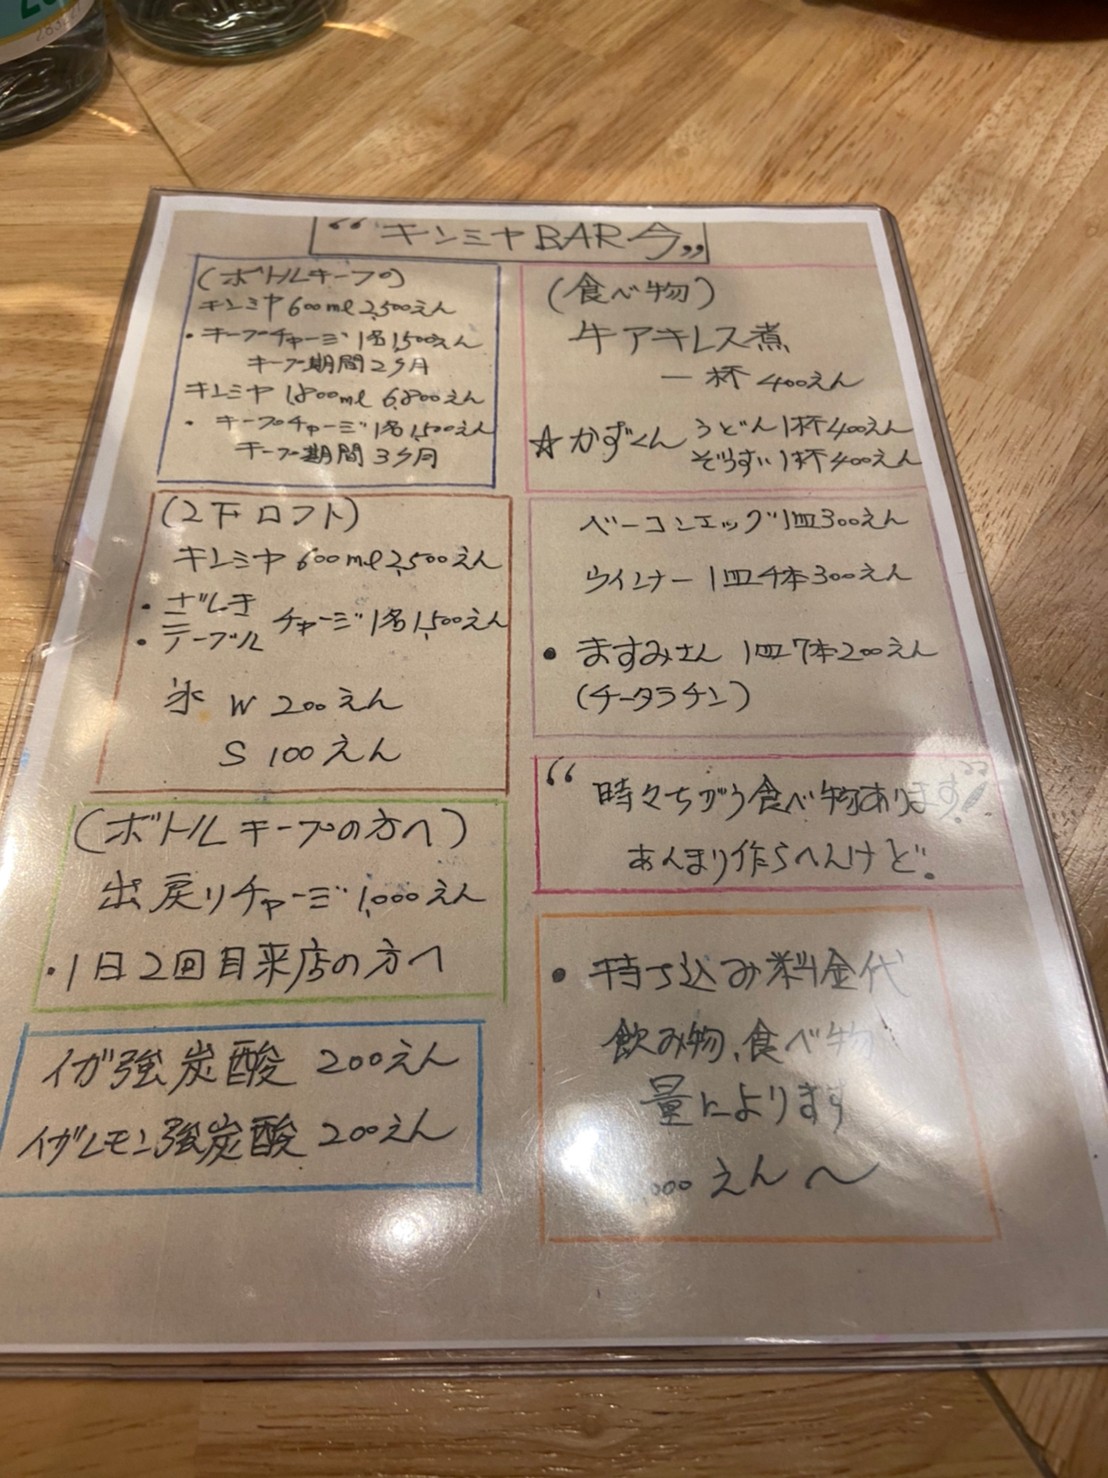 “キンミヤBAR今„
(ボトルキープの)
キンミヤ 600ml 2,500えん
・キープチャージ 1名1,500えん
キープ期間 2ヶ月
キンミヤ 1,800ml 6,800えん
・キープチャージ 1名1,500えん
キープ期間 3ヶ月
(2下ロフト)
キンミヤ 600ml 2,500えん
・ざしき
・テーブル
チャージ 1名1,500えん
氷 W 200えん
S 100えん
(ボトルキープの方へ)
出戻りチャージ 1,000えん
・1日2回目来店の方へ
イガ強炭酸 200えん
イガレモン強炭酸 200えん
(食べ物)
牛アキレス煮
一杯 400えん
☆かずくん うどん1杯400えん
ぞうすい1杯400えん
ベーコンエッグ1皿300えん
ウインナー 1皿4本300えん
・ますみさん 1皿7本200えん
(チータラチン)
“時々ちがう食べ物あります!”
あんまり作らへんけど.
・持ち込み料金代
飲み物、食べ物
量によります
000えん〜